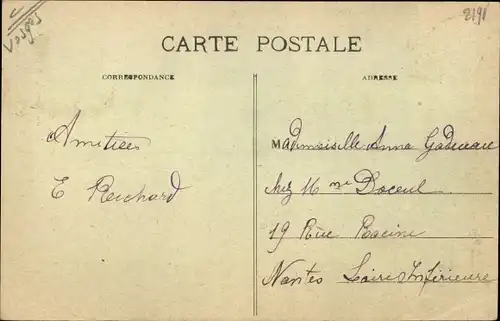 Vosges
2191
CARTE POSTALE
CORRESPONDANCE
ADRESSE
Amitiés
E Reichard
Mademoiselle Anna
chez Mme
19 Rue Racine
Nantes Loire Inférieure